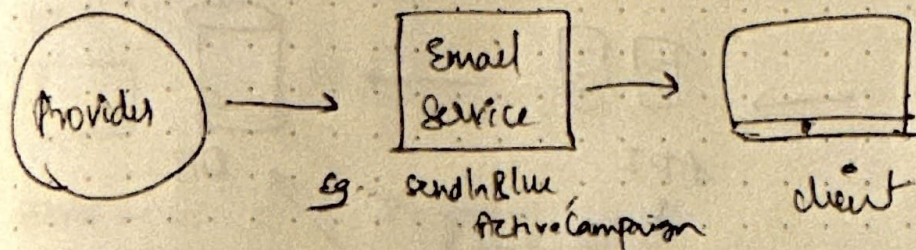 Provider
Email
Service
Eg. SendInBlue,
ActiveCampaign
client